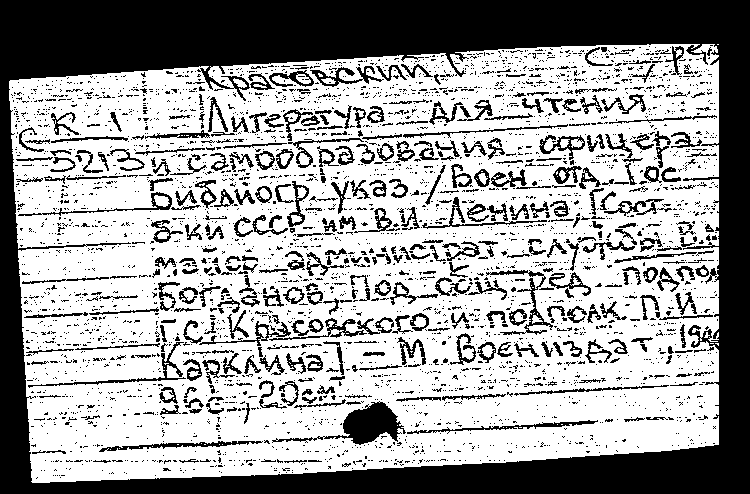 Красовский, Г. С., ред.
К-1 Литература для чтения
5213 и самообразования офицера.
Библиогр. указ. / Воен. отд. Гос.
б-ки СССР им. В.И. Ленина; [Сост.
майор администрат. службы В.М.
Богданов, Под общ. ред. подпол
Г.С. Красовского и подполк. П.И.
Карклина]. – М.: Воениздат,
96с.; 20см.